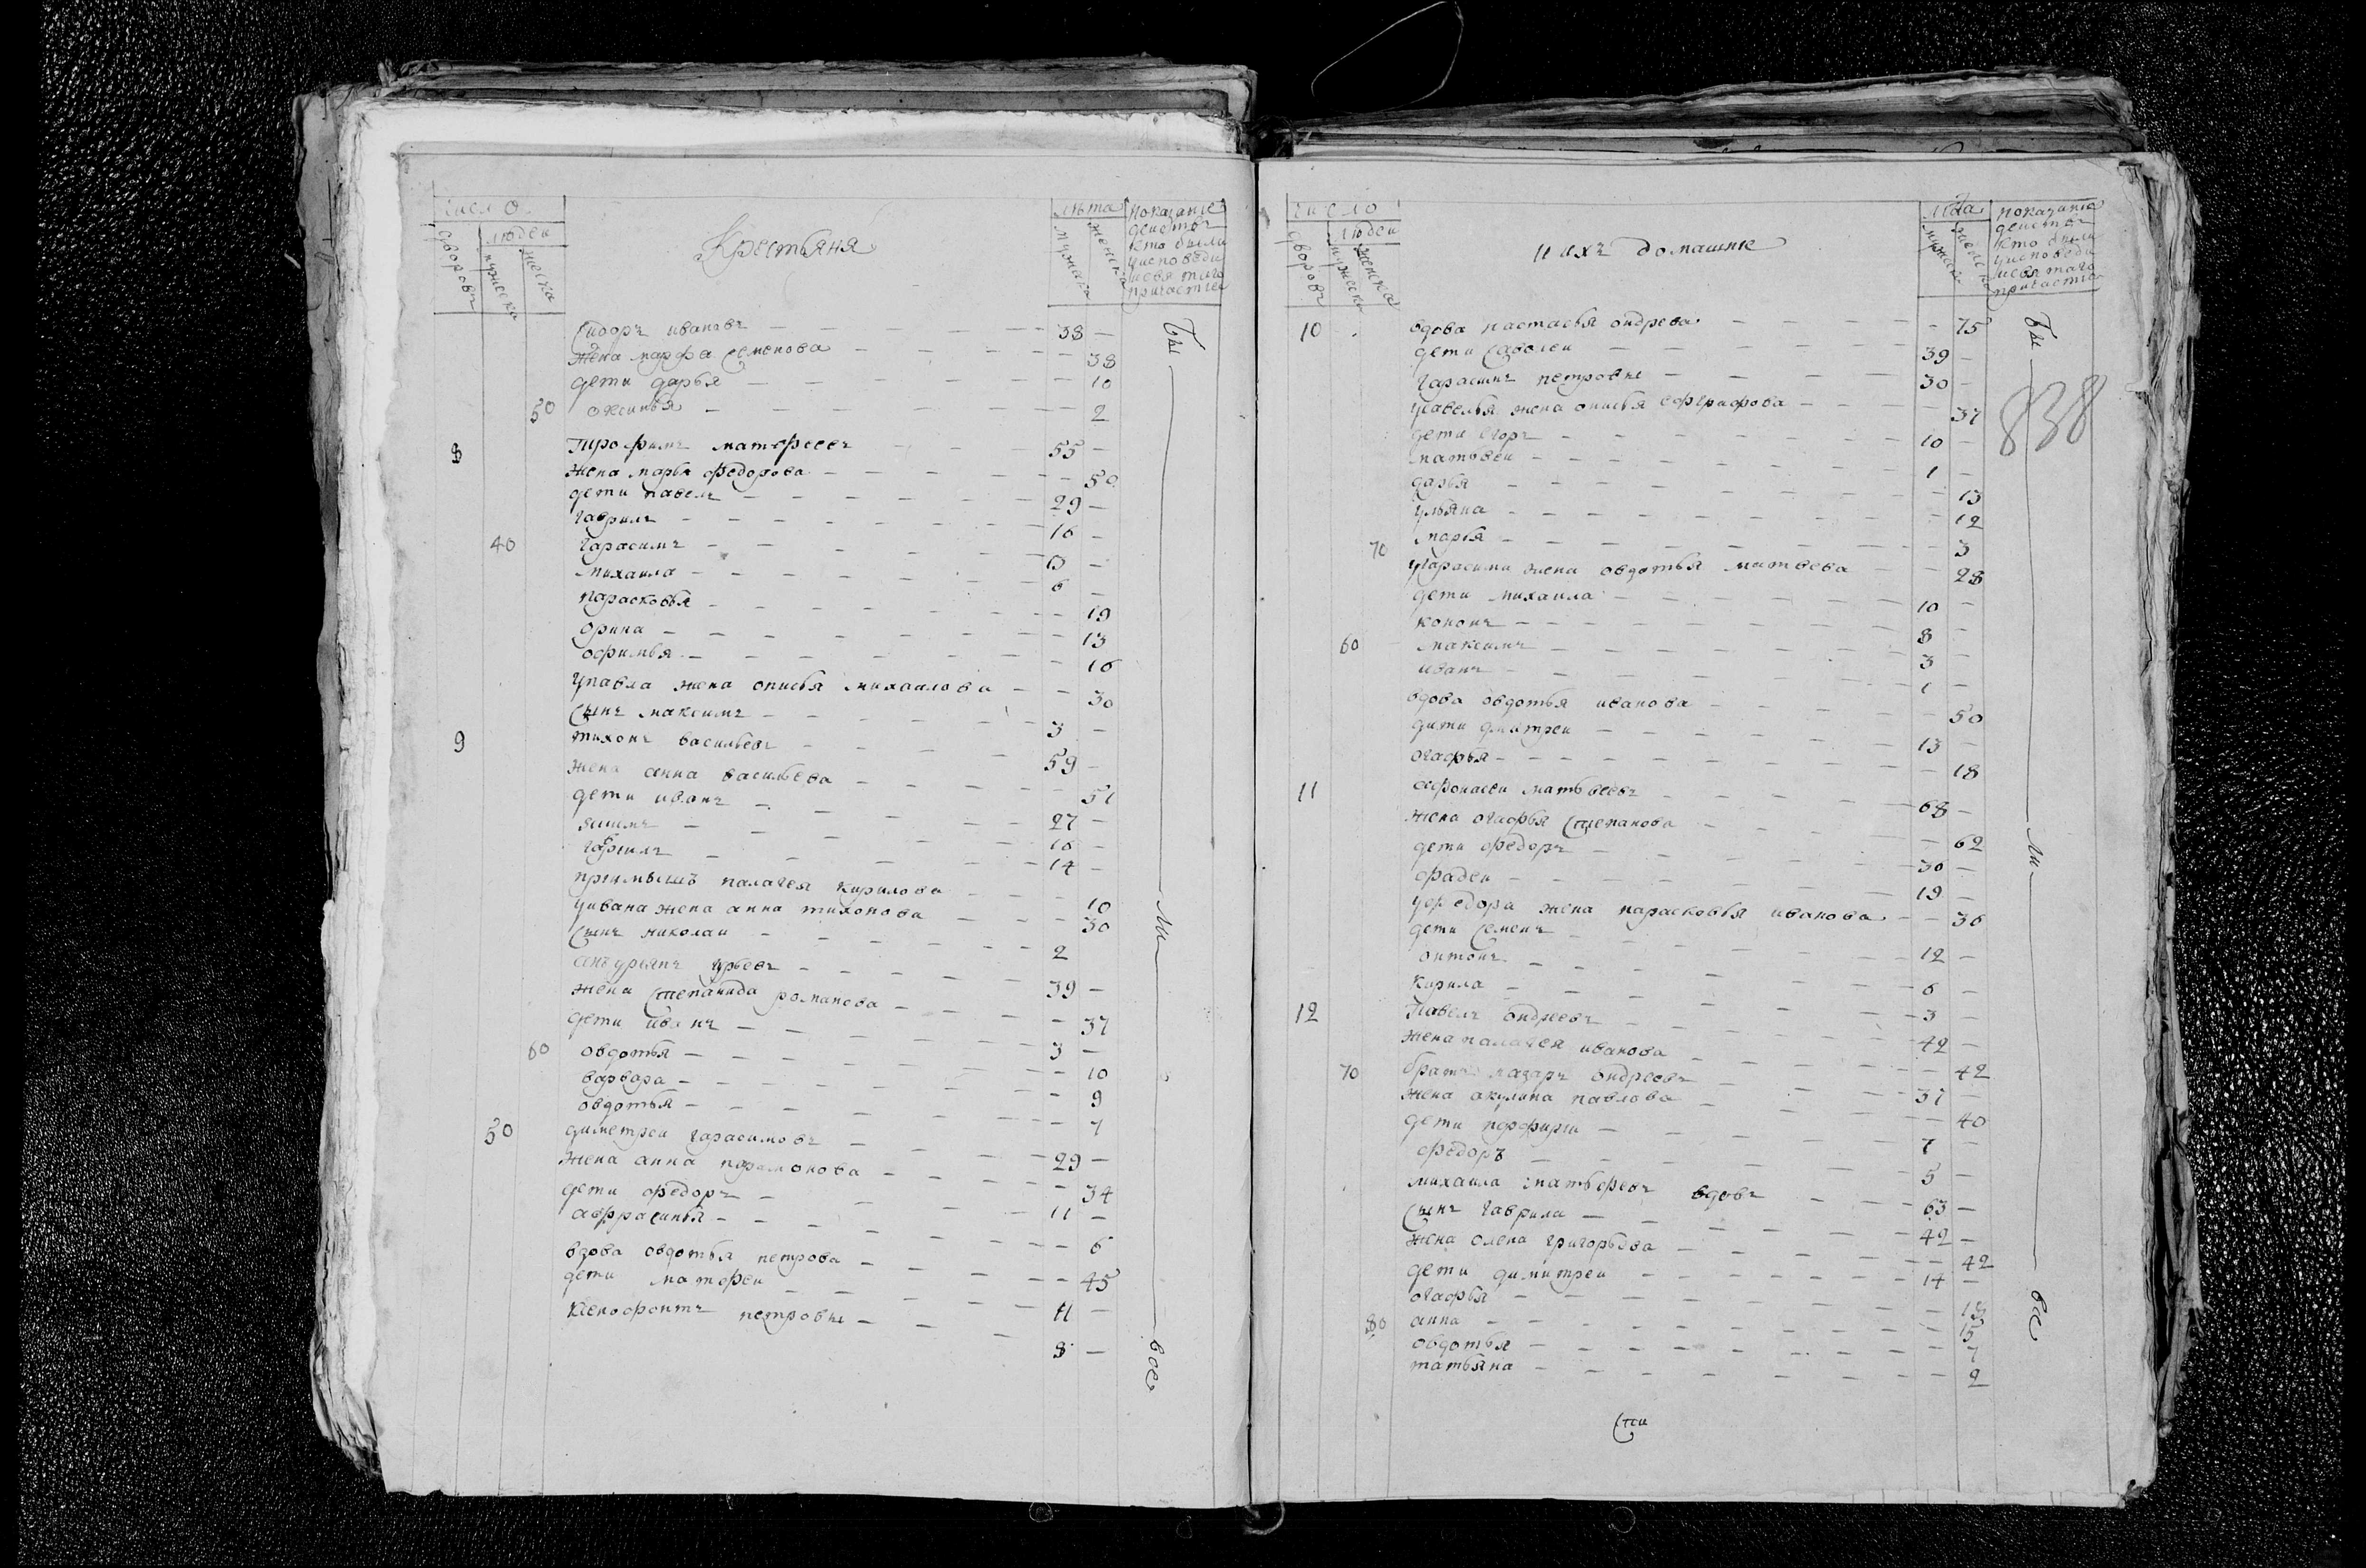 число
людеи
дворовъ
мужеска
женска
Крестьяня
лѣта
мужска
женска
показание
деиствъ
кто были
уисповеди
исвятаго
причастия
Сидоръ ивановъ 38
жена марфа Семенова 38
дети дарья 10
50 оксинья 2
8 Трофимъ матфеевъ 55
жена марья федорова 50
дети павелъ 29
гаврилъ 16
40 гарасимъ 13
михаила 6
парасковья 19
орина 13
офимья 16
упавла жена описья михаилова 30
Сынъ максимъ 3
9 тихонъ васильевъ 59
жена анна васильева 51
дети иванъ 27
якимъ 16
гаврилъ 14
приимышъ палагея кирилова 10
уивана жена анна тихонова 30
Сынъ николаи 2
андреянъ юрьевъ 39
жена Степанида романова 37
дети иванъ 3
60 овдотья 10
варвара 9
овдотья 7
50 диметреи гарасимовъ 29
жена анна парамонова 34
дети федоръ 11
афрасинья 6
вдова овдотья петрова 45
дети матфеи 11
Ксенофонтъ петровы 8
Бы ли вос
число
людеи
дворовъ
мужеска
женска
и ихъ домашние
лѣта
мужска
женска
показание
деиствъ
кто были
уисповеди
исвятаго
причастия
838
10 вдова настасья ондрева 75
дети Савелеи 39
гарасимъ петровы 30
усавелья жена описья ефграфова 37
дети егоръ 10
матвеи 1
дарья 13
ульяна 12
70 марья 3
угарасима жена овдотья матвева 28
дети михаила 10
кононъ 8
60 максимъ 3
иванъ 1
вдова овдотья иванова 50
дети дмитреи 13
огафья 18
11 афонасеи матвеевъ 68
жена огафья Степанова 62
дети федоръ 30
фадеи 19
уфедора жена парасковья иванова 36
дети Семенъ 12
онтонъ 6
кирила 3
12 Павелъ ондреевъ 42
жена палагея иванова 42
70 братъ лазаръ ондреевъ 37
жена акулина павлова 40
дети порфирии 7
федоръ 5
михаила матьфеевъ вдовъ 63
Сынъ гаврила 42
жена олена григорьева 42
дети димитреи 14
огафья 18
80 анна 15
овдотья 7
татьяна 2
Бы ли вос
Сти